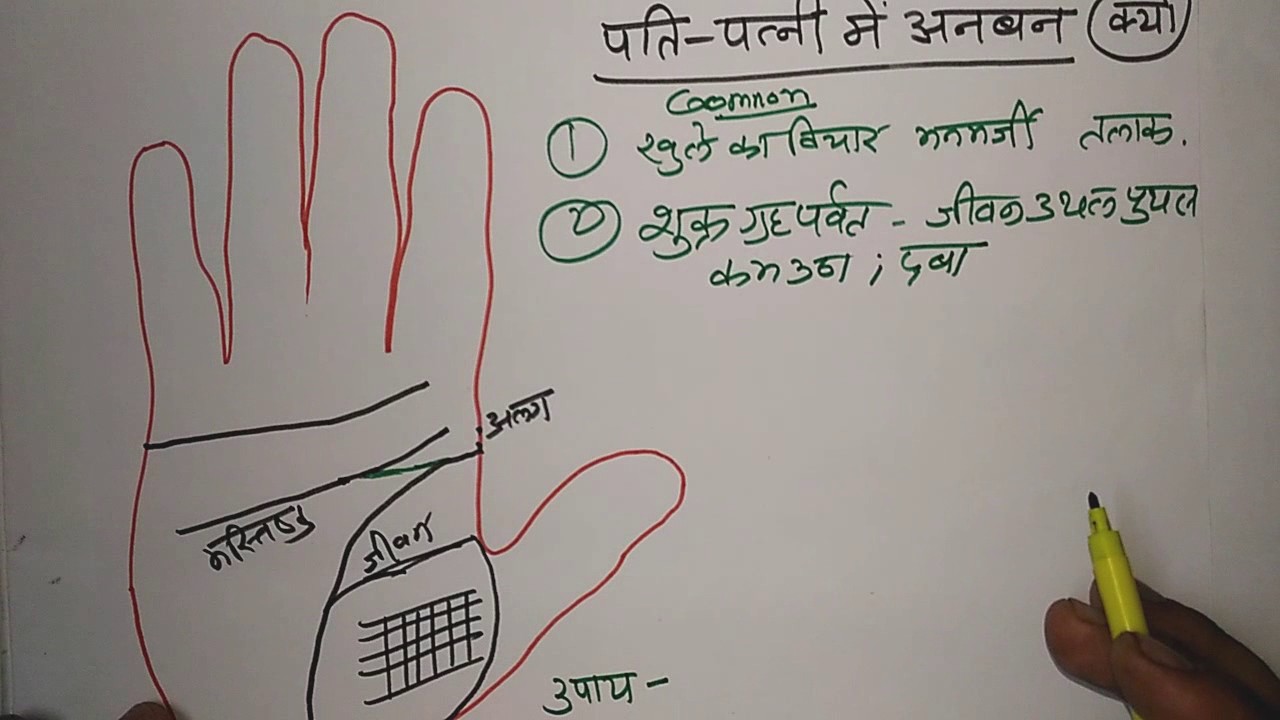 पति-पत्नी में अनबन क्यों
Coomnon
① खुले का विचार मनमर्जी तलाक.
② शुक्र गृह पर्वत - जीवन उथल पुथल
कम उठा ; दबा
अलग
मस्तिष्क
जीवन
उपाय -